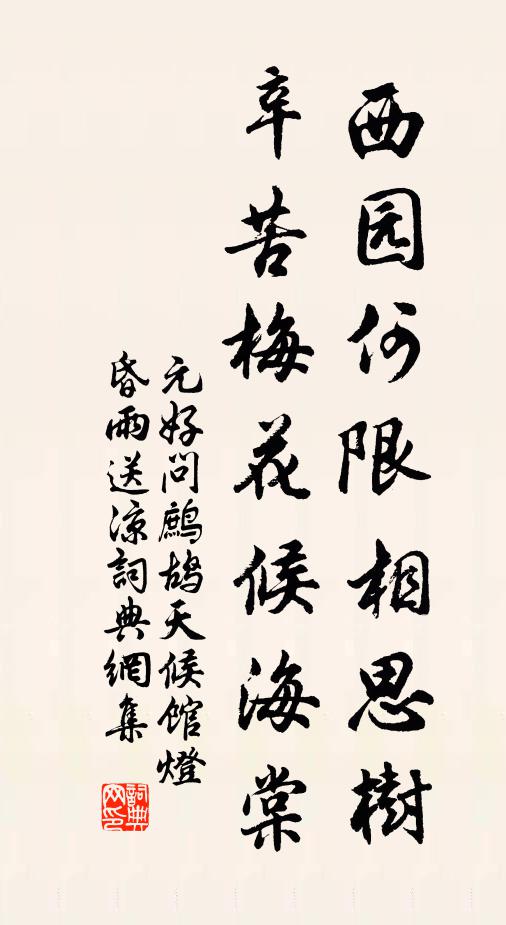 西园何限相思樹
辛苦梅花候海棠
元好问鷓鸪天候館燈
昏雨送涼詞典網集
詞典网印